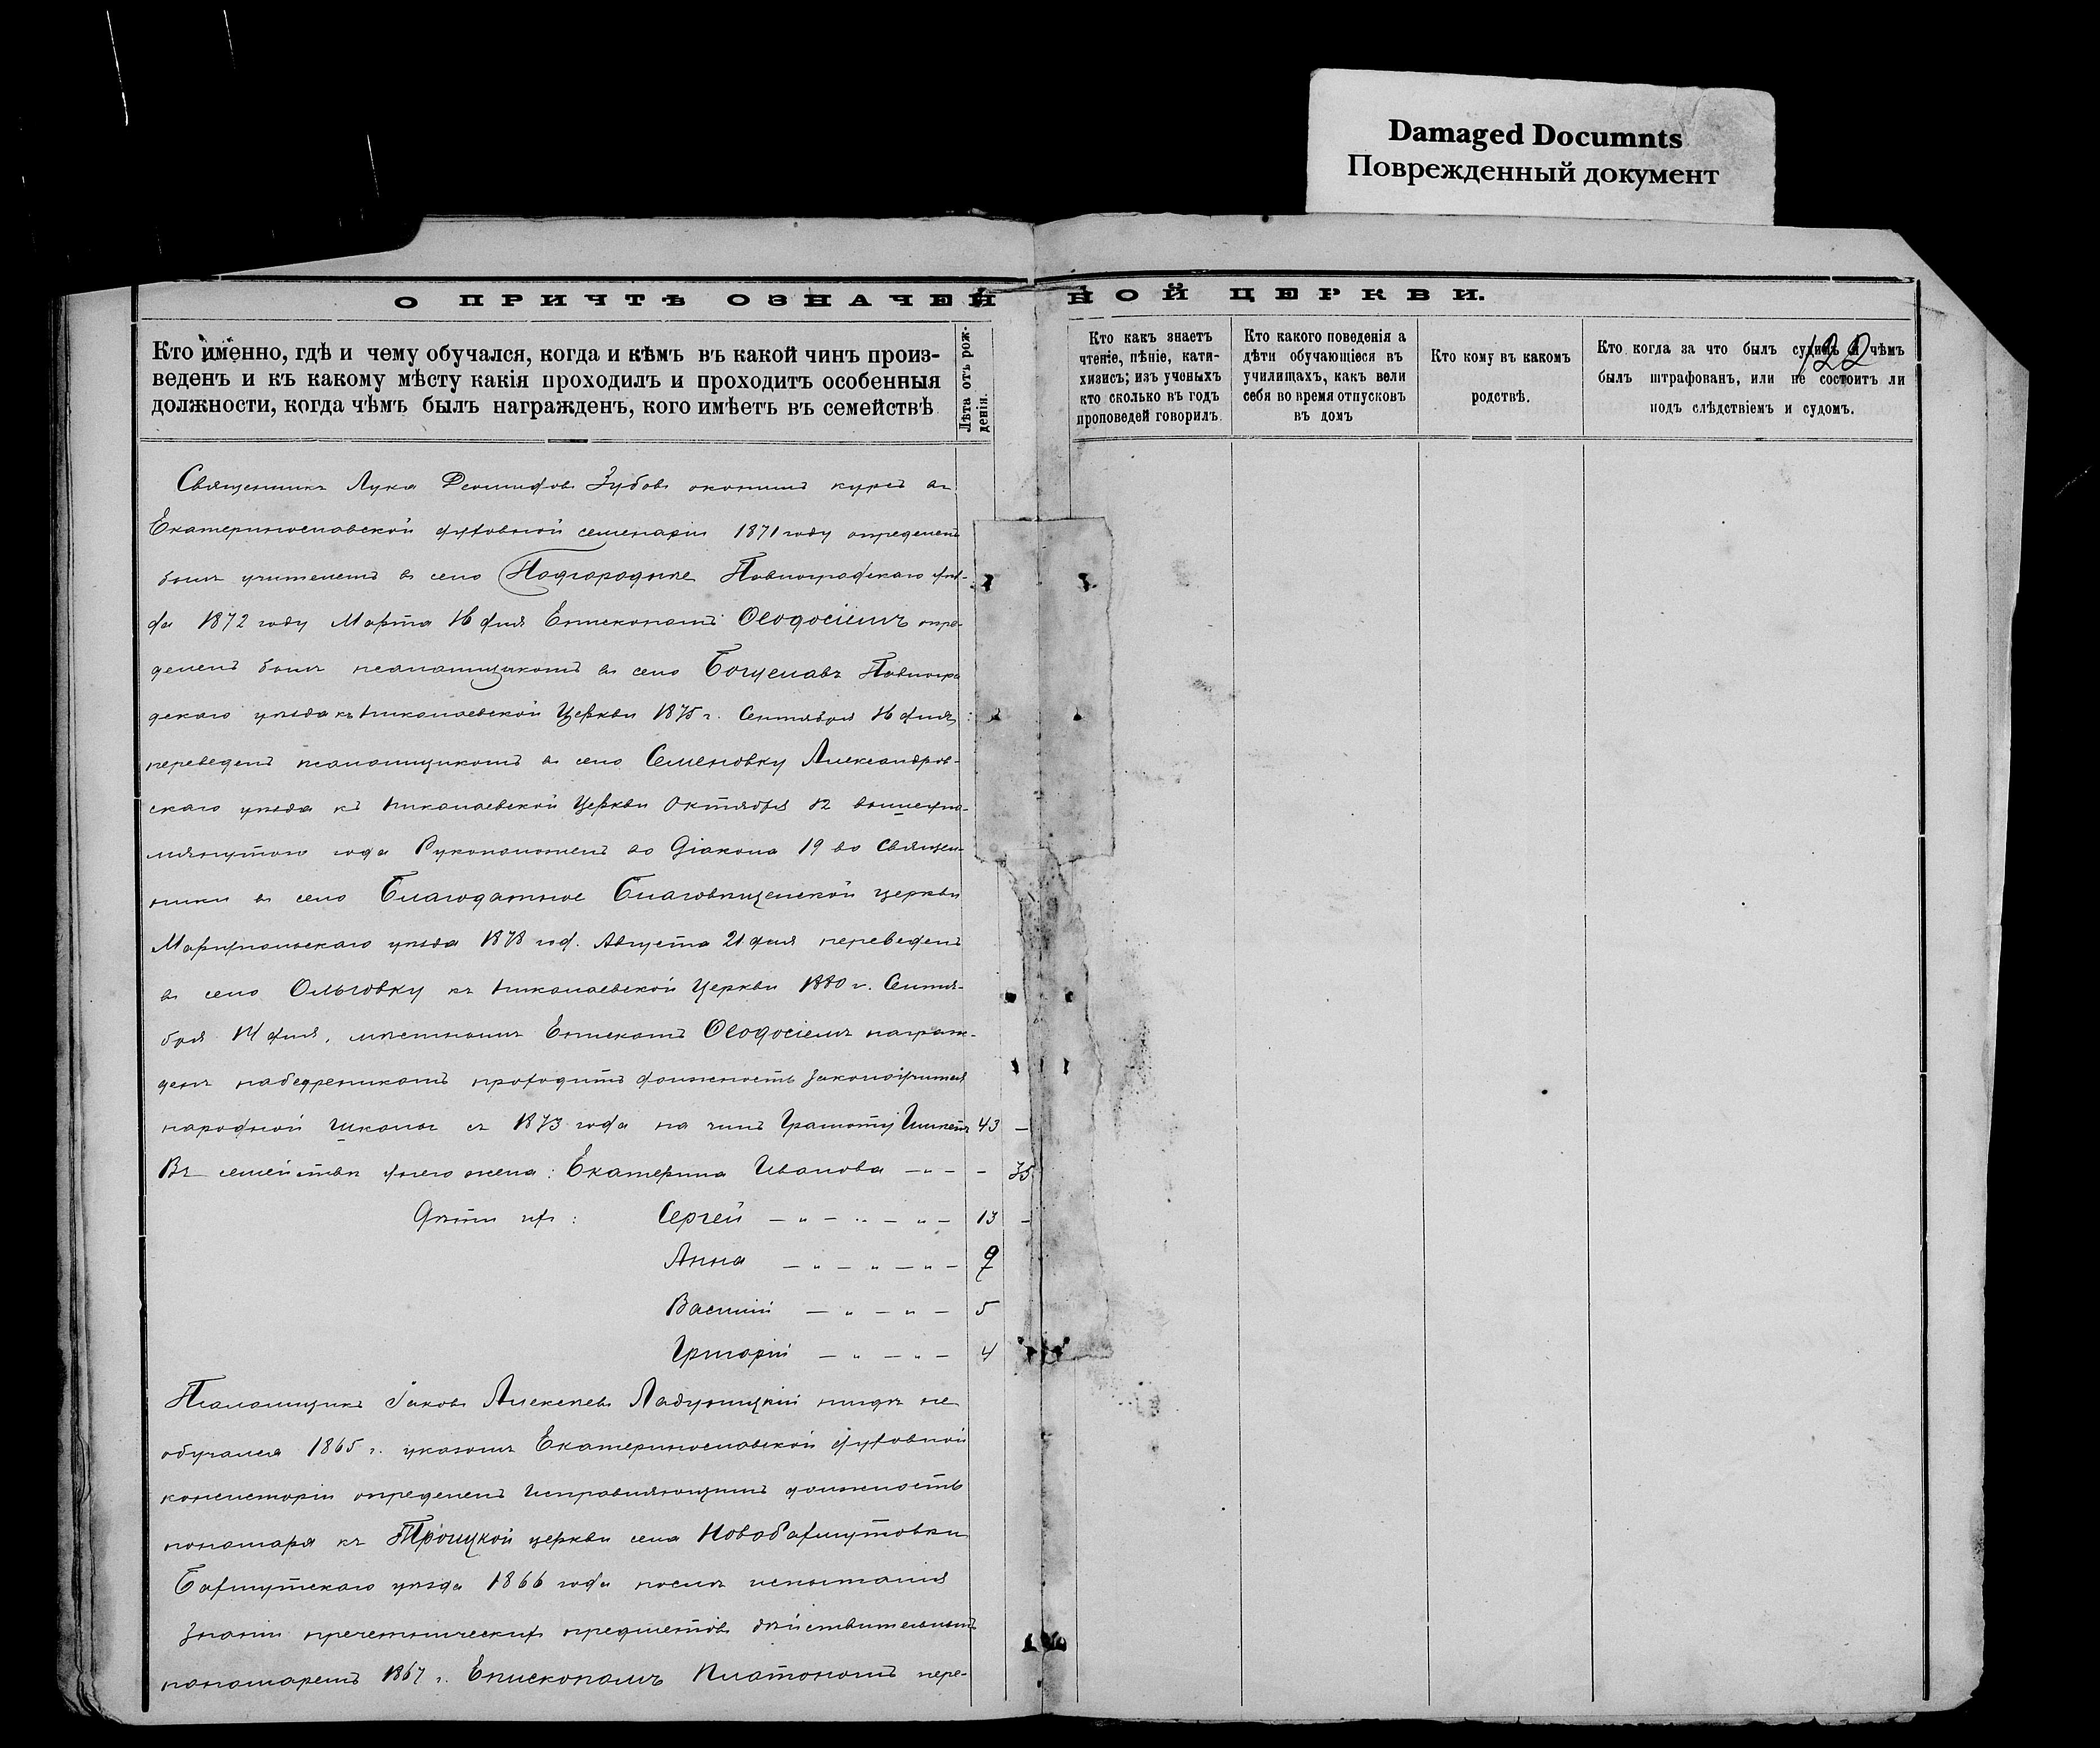 Damaged Documnts
Поврежденный документ
О ПРИЧТѢ ОЗНАЧЕННОЙ ЦЕРКВИ.
122
Кто именно, гдѣ и чему обучался, когда и кѣмъ въ какой чинъ произ-
веденъ и къ какому мѣсту какія проходилъ и проходитъ особенныя
должности, когда чѣмъ былъ награжденъ, кого имѣетъ въ семействѣ
Лѣта отъ рож-
денія.
Кто какъ знаетъ
чтеніе, пѣніе, кати-
хизисъ; изъ ученыхъ
кто сколько въ годъ
проповедей говорилъ.
Кто какого поведенія а
дѣти обучающіеся въ
училищахъ, какъ вели
себя во время отпусковъ
въ домъ
Кто кому въ какомъ
родствѣ.
Кто когда за что былъ судимъ и чѣмъ
былъ штрафованъ, или не состоитъ ли
подъ слѣдствіемъ и судомъ.
Священникъ Лука Зубовъ окончилъ курсъ въ
Екатеринославской духовной семенаріи 1871 году определенъ
былъ учителемъ въ село Подгородние Павлоградскаго уѣз-
да 1872 году Марта 16 дня Епископомъ Ѳеодосіемъ опре-
деленъ былъ псаломщикомъ въ село Богуславъ Павлогра
дскаго уѣзда къ Николаевской Церкви 1875 г. Сентября 16 дня
переведенъ псаломщикомъ въ село Семеновку Александров-
скаго уѣзда къ Николаевской Церкви Октября 12 вышеупо-
мянутого года Рукоположенъ во Діакона 19 во Священ-
ники въ село Благодатное Благовѣщенской церкви
Маріупольскаго уѣзда 1878 год. Августа 21 дня переведенъ
въ село Ольговку къ Николаевской Церкви 1880 г. Сентя-
бря 14 дня, мѣстнымъ Епискомъ Ѳеодосіемъ награж-
денъ набедреникомъ проходитъ должность Законоучителя
народной Школы съ 1873 года на чинъ Грамоту Имѣетъ 43 —
Въ семействѣ у него жена: Екатерина Иванова — „ — - 35
Дѣти ихъ: Сергей — „ — „ — „ — 13 —
Анна — „ — „ — „ — 9
Василій — „ — „ — 5
Григорій — „ — „ — 4
Псаломщикъ Іаковъ Алексѣевъ Ладухицкій нигдѣ не
обучался 1865 г. указомъ Екатеринославской духовной
консисторіи определенъ Исправляющимъ должность
пономаря къ Троицкой церкви села Новобахмутовки
Бахмутскаго уѣзда 1866 года послѣ испытанія
Знаніи причетническихъ предметовъ дѣйствительнымъ
пономаремъ 1867 г. Епископомъ Платономъ пере-